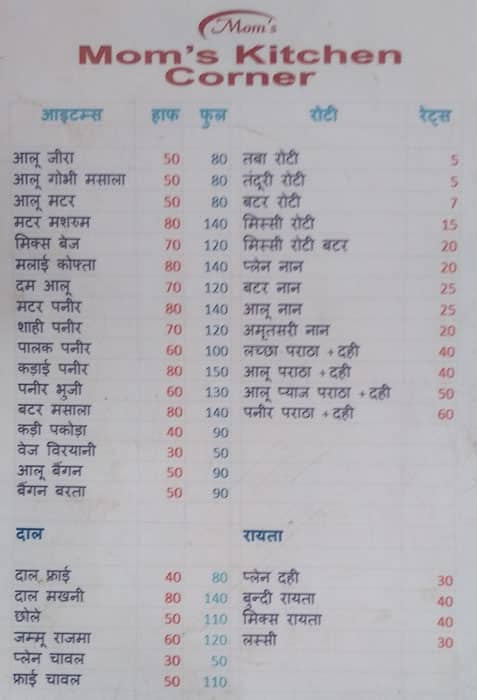 Mom's
Mom's Kitchen
Corner
आइटम्स हाफ फुल रोटी रेट्स
आलू जीरा 50 80 तबा रोटी 5
आलू गोभी मसाला 50 80 तंदूरी रोटी 5
आलू मटर 50 80 बटर रोटी 7
मटर मशरुम 80 140 मिस्सी रोटी 15
मिक्स बेज 70 120 मिस्सी रोटी बटर 20
मलाई कोफ्ता 80 140 प्लेन नान 20
दम आलू 70 120 बटर नान 25
मटर पनीर 80 140 आलू नान 25
शाही पनीर 70 120 अमृतसरी नान 20
पालक पनीर 60 100 लच्छा पराठा + दही 40
कड़ाई पनीर 80 150 आलू पराठा + दही 40
पनीर भुजी 60 130 आलू प्याज पराठा + दही 50
बटर मसाला 80 140 पनीर पराठा + दही 60
कड़ी पकोड़ा 40 90
वेज विरयानी 30 50
आलू बैंगन 50 90
बैंगन बरता 50 90
दाल रायता
दाल फ्राई 40 80 प्लेन दही 30
दाल मखनी 80 140 बुन्दी रायता 40
छोले 50 110 मिक्स रायता 40
जम्मू राजमा 60 120 लस्सी 30
प्लेन चावल 30 50
फ्राई चावल 50 110